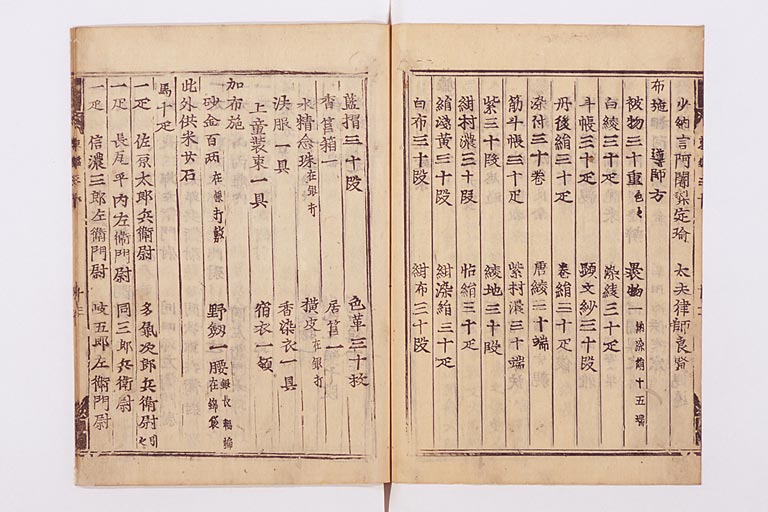 少納言阿闍梨定瑜 大夫律師良賢
布施 導師方
被物三十重色々 裹物一
白綾三十疋 染綾三十疋
斗帳三十疋 顕文紗三十段
丹後絹三十疋 巻絹三十疋
染付三十巻 唐綾三十端
筋斗帳三十疋 紫村濃三十端
紫三十段 綾地三十段
紺村濃三十段 帖絹三十疋
絹浅黄三十疋 紺染絹三十疋
白布三十段 紺布三十段
藍摺三十段 色革三十枚
香筥箱一 居筥一
水精念珠在銀打 横皮在銀打
法服一具 香染衣一具
上童装束一具 宿衣一領
加布施
砂金百両在銀打 野劔一腰
此外供米廿石
馬十疋
一疋 佐原太郎兵衛尉 多氣次郎兵衛尉
一疋 長尾平内左衛門尉 同三郎兵衛尉
一疋 信濃三郎左衛門尉 岐五郎左衛門尉